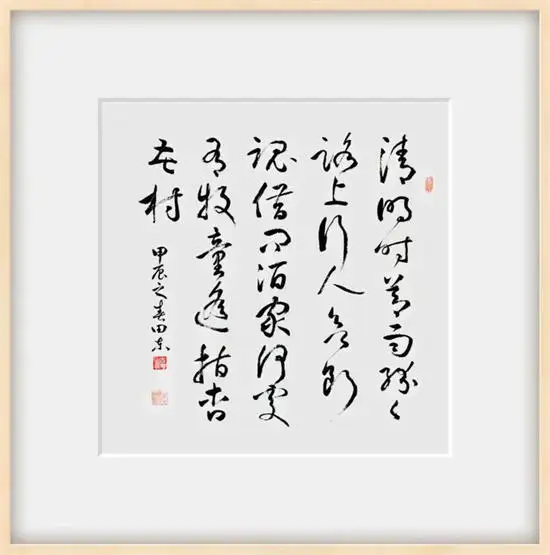 清明时节雨纷々
路上行人欲断
魂借问酒家何处
有牧童遥指杏
花村
甲辰之春田东